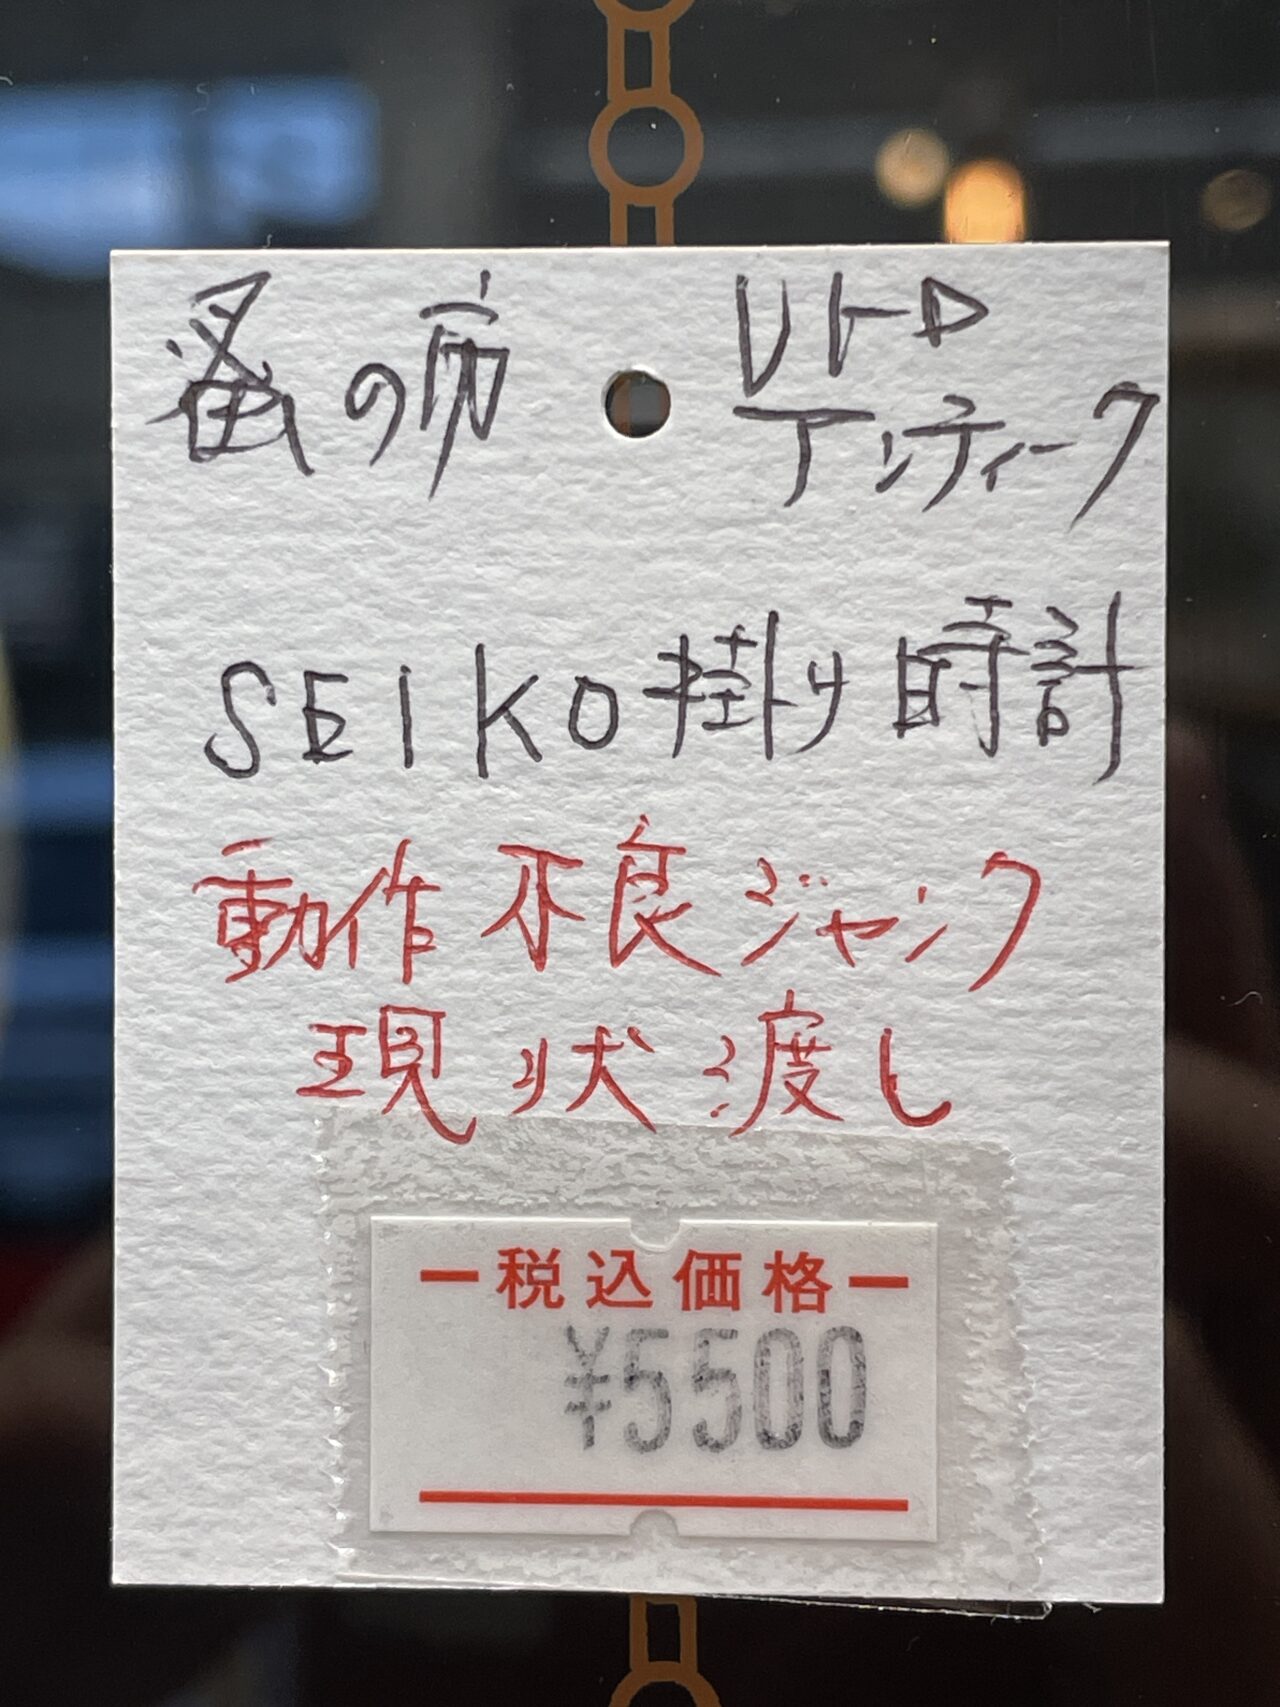 蚤の市
レトロ
アンティーク
SEIKO掛け時計
動作不良ジャンク
現状渡し
税込価格
¥5500